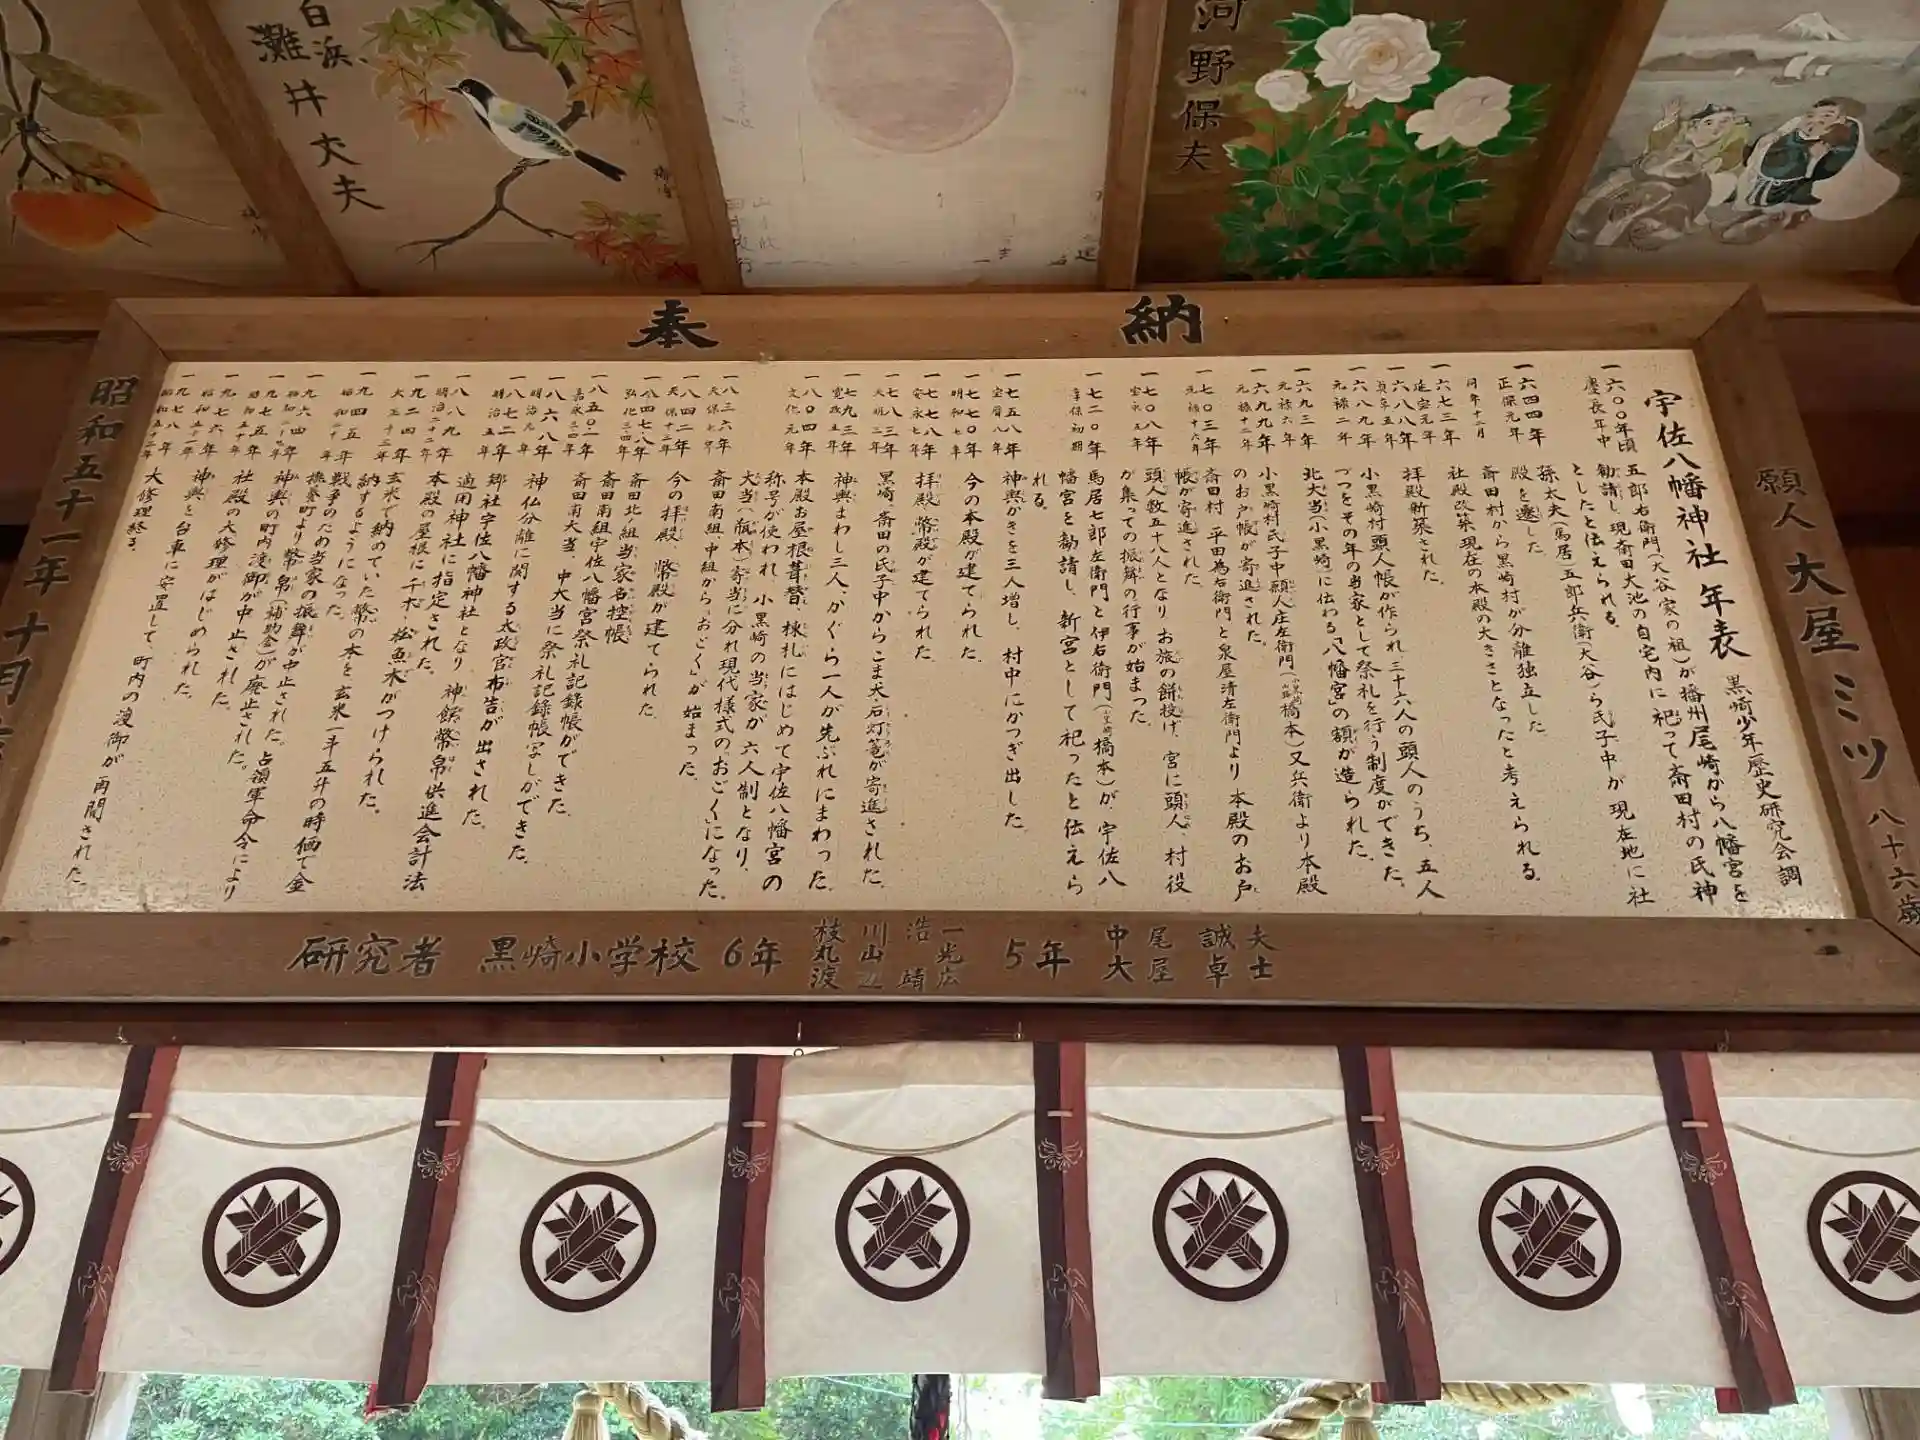 白浜
灘井丈夫
河野保夫
奉納
願人 大屋ミツ 八十六歳
宇佐八幡神社年表 黒崎少年歴史研究会調
一六〇〇年頃 慶長年中 五郎右衛門(大谷家の祖)が播州尾崎から八幡宮を
勧請し、現斎田大池の自宅内に祀って斎田村の氏神
としたと伝えられる。
一六四四年 正保元年 孫太夫(馬居)五郎兵衛(大谷)ら氏子中が現在地に社
殿を遷した。
同年十二月 斎田村から黒崎村が分離独立した。
社殿改築現在の本殿の大きさとなったと考えられる。
一六七三年 延宝元年 拝殿新築された。
一六八八年 貞享五年 小黒崎村頭人帳が作られ三十六人の頭人のうち、五人
一六八九年 元禄二年 づつをその年の当家として祭礼を行う制度ができた。
一六九三年 元禄六年 北大当(小黒崎に伝わる「八幡宮」の額が造られた。
一六九九年 元禄十二年 小黒崎村氏子中願人庄左衛門(橋本)又兵衛より本殿
のお戸帳が寄進された。
一七〇三年 元禄十六年 斎田村 平田為右衛門と泉屋清左衛門より本殿のお戸
帳が寄進された。
一七〇八年 宝永五年 頭人数五十八人となりお旅の餅投げ、宮に頭人、村役
が集っての振舞の行事が始まった。
一七二〇年 享保初期 馬居七郎左衛門と伊右衛門(橋本)が、宇佐八
幡宮を勧請し、新宮として祀ったと伝えら
れる。
一七五八年 宝暦八年 神輿がきを三人増し、村中にかつぎ出した。
一七七〇年 明和七年 今の本殿が建てられた。
一七七八年 安永七年 拝殿、幣殿が建てられた。
一七八三年 天明三年 黒崎、斎田の氏子中からこま犬、石灯篭が寄進された。
一七九三年 寛政五年 神輿まわし三人、かぐら一人が先ぶれにまわった。
一八〇四年 文化元年 本殿お屋根葺替、棟札にはじめて宇佐八幡宮の
称号が使われ、小黒崎の当家が六人制となり、
大当(瓶本)寄当に分れ現代様式の「おごく」になった。
一八三六年 天保七年 斎田南組、中組から「おどく」が始まった。
一八四二年 天保十三年 今の拝殿、幣殿が建てられた。
一八四七・八年 弘化三・四年 斎田北組当家名控帳
一八五〇・一年 嘉永三・四年 斎田南組宇佐八幡宮祭礼記録帳ができた。
斎田南大当、中大当に祭礼記録帳写しができた。
一八六八年 明治元年 神仏分離に関する太政官布告が出された。
一八七二年 明治五年 郷社宇佐八幡神社となり、神饌幣帛供進会計法
適用神社に指定された。
一八八九年 明治二十二年 本殿の屋根に千木、松魚木がつけられた。
一九二四年 大正十三年 玄米で納めていた幣の本を玄米一斗五升の時価で金
納するようになった。
一九四五年 昭和二十年 戦争のため当家の振舞が中止された。占領軍命令により
撫養町より幣帛(補助金)が廃止された。
一九六四年 神輿の町内渡御が中止された。
一九七五年 昭和五十年 社殿の大修理がはじめられた。
一九七六年 昭和五十一年 神輿を台車に安置して、町内の渡御が再開された。
一九七八年 大修理終る。
昭和五十一年十月
研究者 黒崎小学校 6年 枝川浩一 丸山光 渡辺靖広 5年 中尾誠夫 大屋卓士